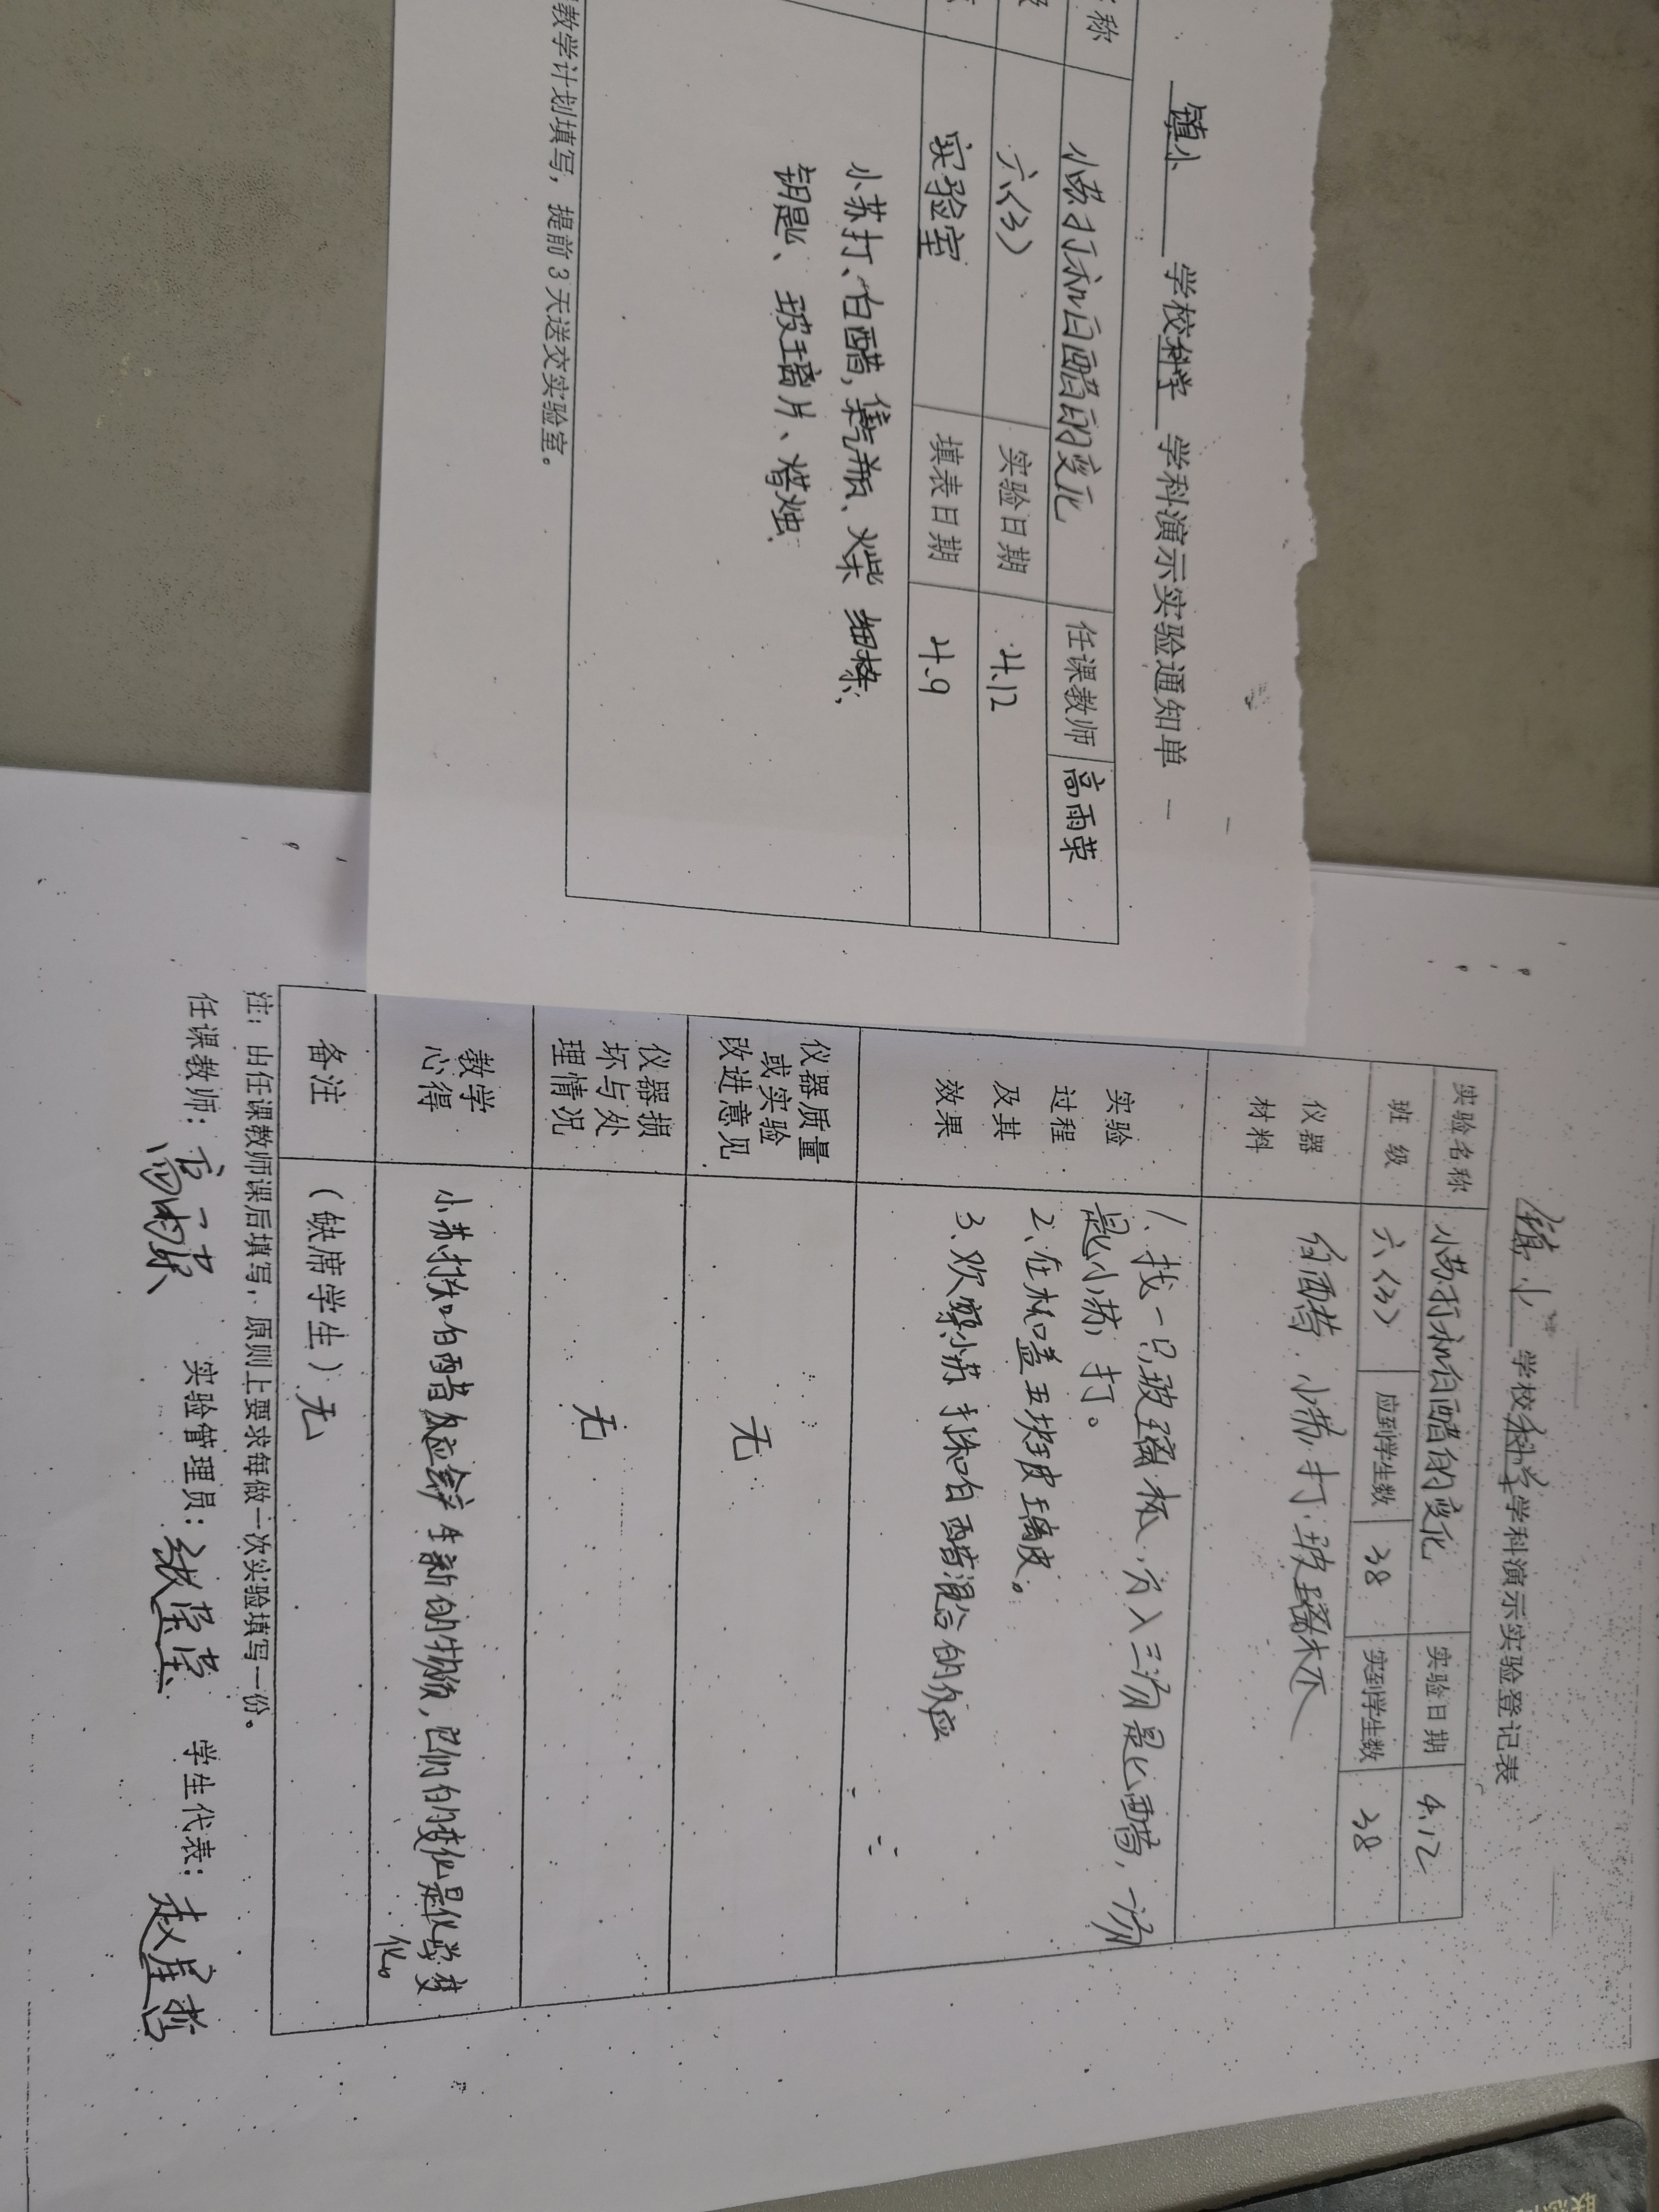 镇小 学校 科学 学科演示实验通知单
称 小苏打和白醋的变化 任课教师 高雨荣
级 六(3) 实验日期 4.12
实验室 填表日期 4.9
小苏打、白醋,集气瓶、火柴 细棒、
钥匙、玻璃片、蜡烛
教学计划填写,提前3天送交实验室。
镇小 学校科学学科演示实验登记表
实验名称 小苏打和白醋的变化 实验日期 4.12
班级 六(3) 应到学生数 38 实到学生数 38
仪器
材料
白醋 小苏打 玻璃杯
实验
过程
及其
效果
1、找一只玻璃杯,方入三汤匙醋,一汤
匙小苏打。
2、在杯口盖五块玻璃皮。
3、观察小苏打和白醋混合的反应
仪器质量
或实验
改进意见
无
仪器损
坏与处
理情况
无
教学
心得
小苏打和白醋反应会产生新的物质,它们的变化是化学变
化。
备注 (缺席学生)无
注:由任课教师课后填写,原则上要求每做一次实验填写一份。
任课教师:高雨荣 实验管理员:张莹莹 学生代表:赵星哲